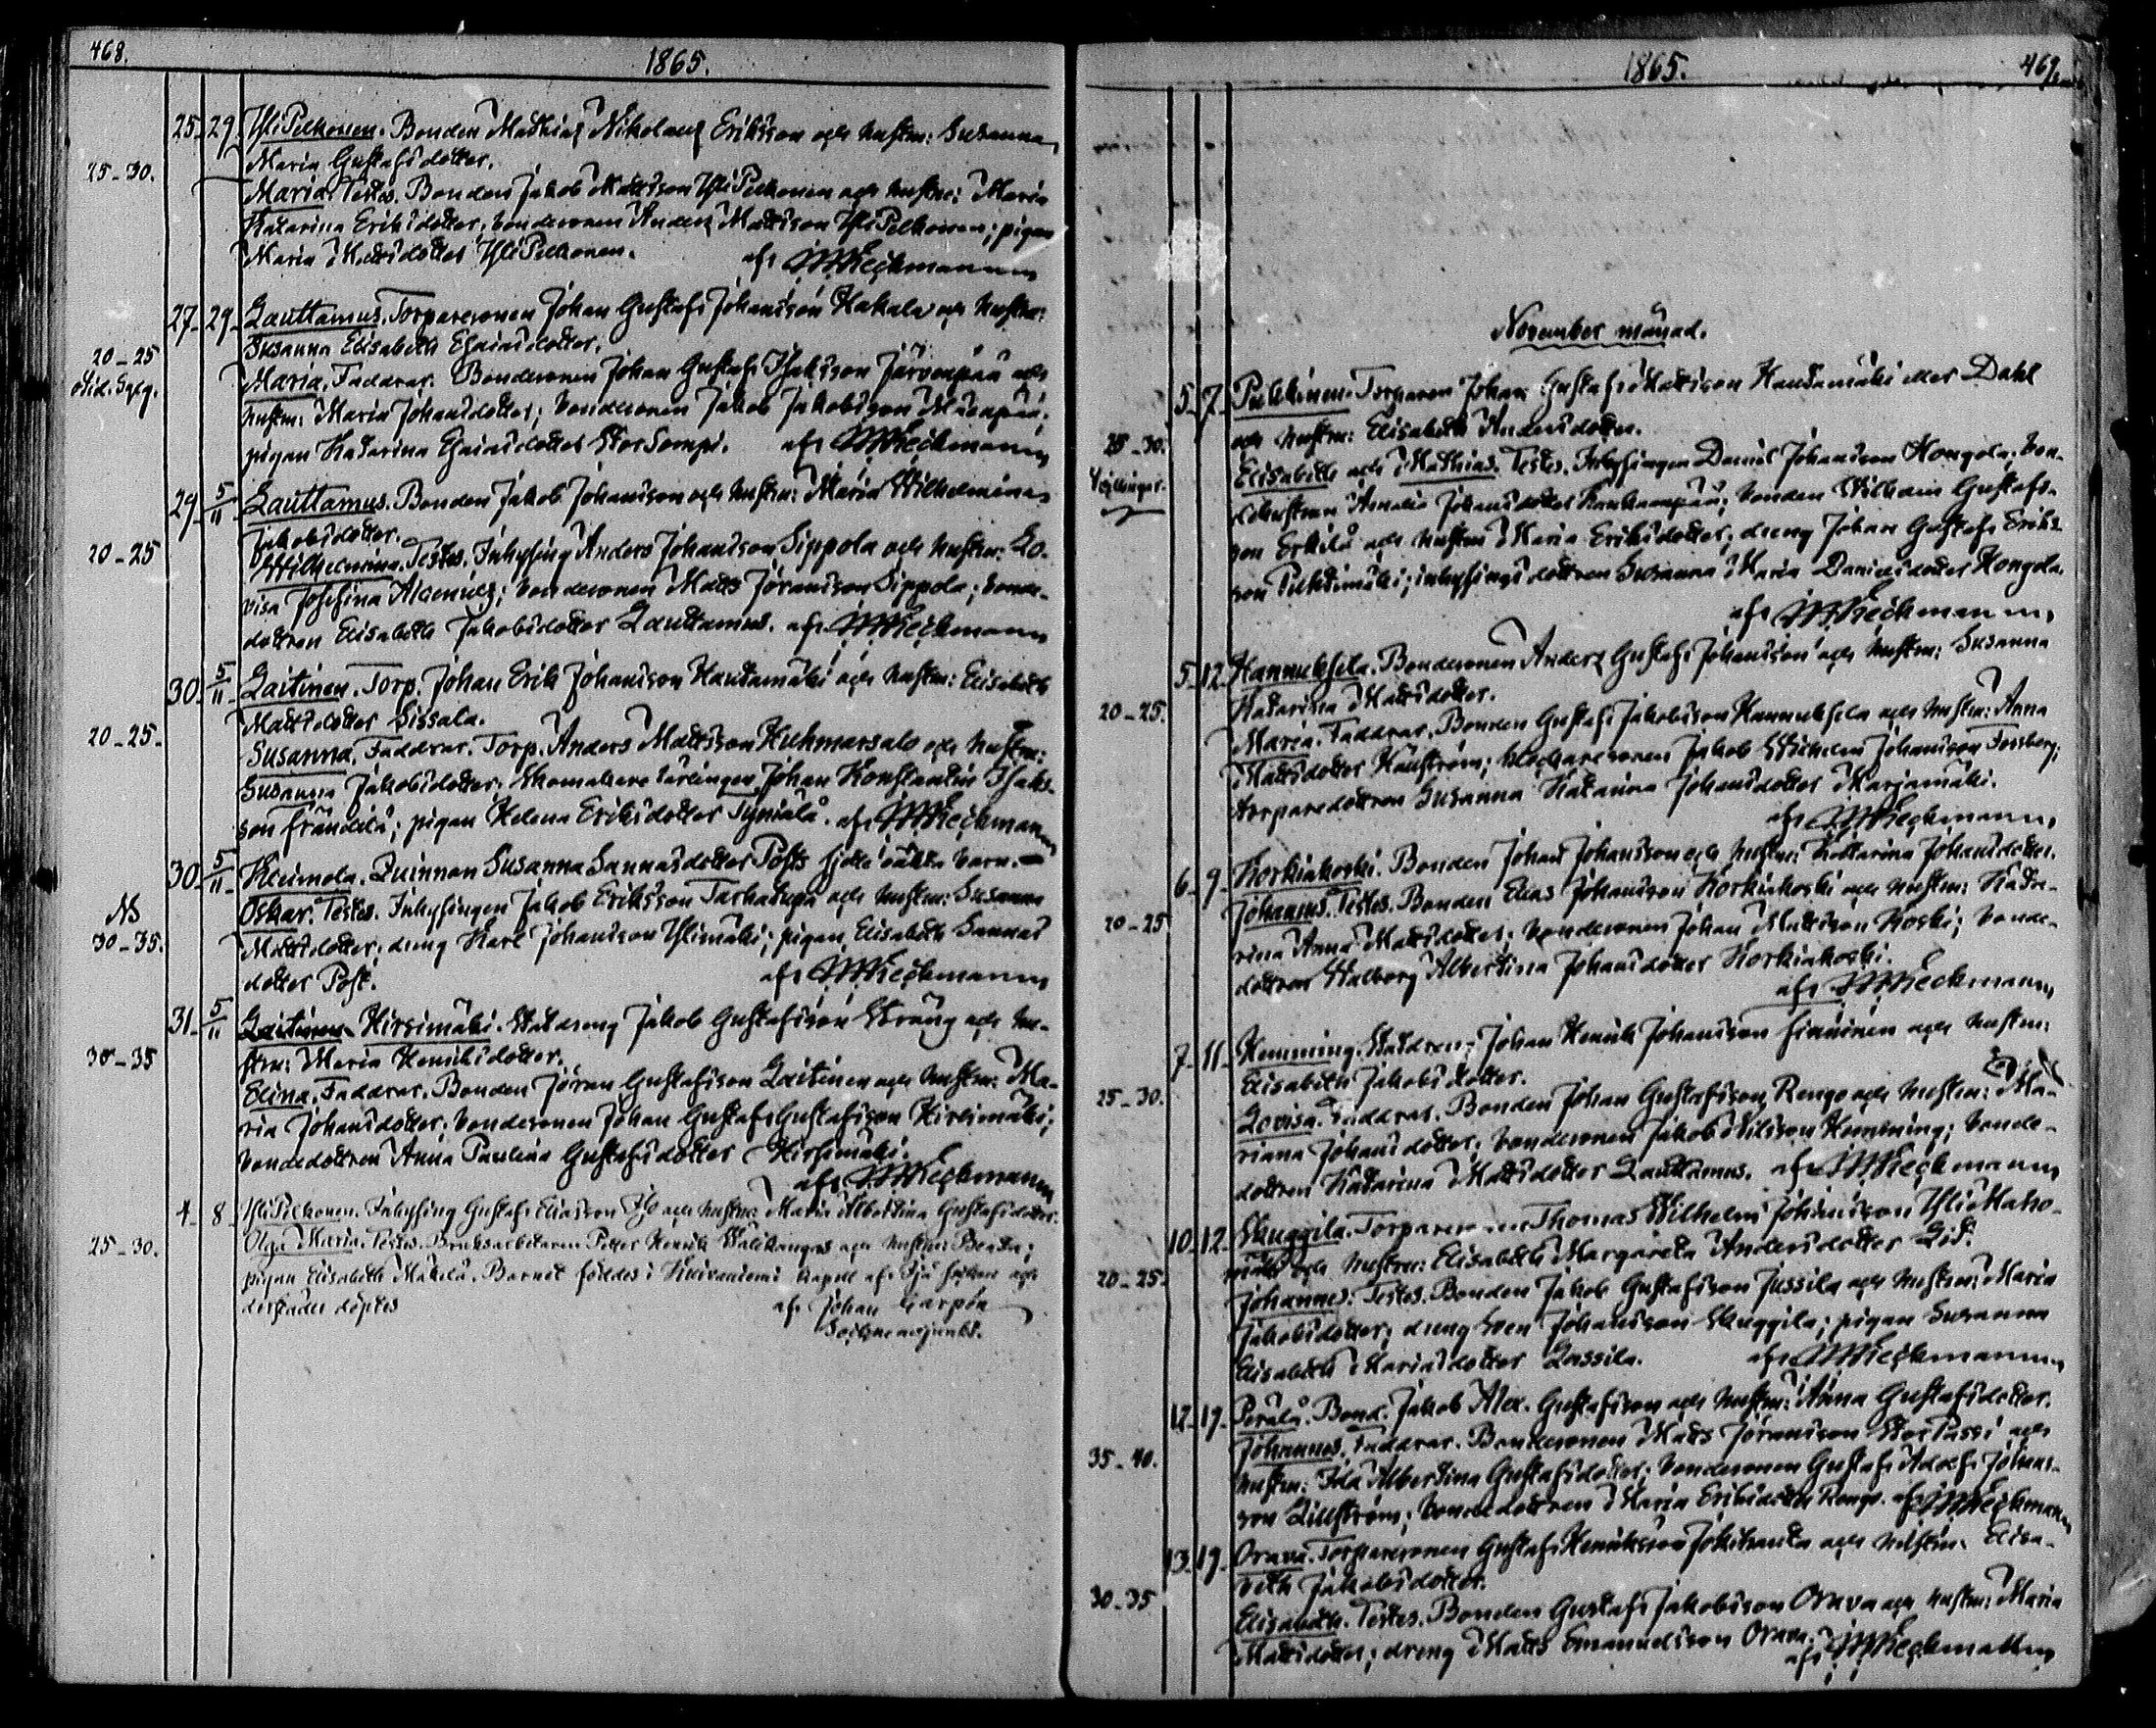 468.
1865.
25. 29. Yli Pelkonen. Bonden Mathias Nikolaus Eriksson och hustru: Susanna
Maria Gustafsdotter.
25-30.
Maria. Testes. Bonden Jakob Mattsson Yli Pelkonen och hustru: Maria
Katarina Eriksdotter, bondesonen Anders Mattsson Yli Pelkonen; pigan
Maria Mattsdotter Yli Pelkonen.
af
27. 29. Lauttamus. Torparesonen Johan Gustaf Johansson Hakala och hustru:
Susanna Elisabeth Esaiasdotter.
20-25
Maria. Faddrar. Bondesonen Johan Gustaf Isaksson Järvenpää och
hustru: Maria Johansdotter; bondesonen Jakob Jakobsson
pigan Katarina Esaiasdotter StorSompi. af
29. 5/11 Lauttamus. Bonden Jakob Johansson och hustru: Maria Wilhelmina
Jakobsdotter.
20-25
Wilhelmina. Testes. Inhysing Anders Johansson Sippola och hustru: Lo-
visa Josefina; bondesonen Matts Jöransson Sippola; bonde-
dottren Elisabeth Jakobsdotter Lauttamus. af
30. 5/11 Laitinen. Torp. Johan Erik Johansson Hautamäki och hustru: Elisabeth
Mattsdotter Sissala.
20-25.
Susanna. Faddrar. Torp. Anders Mattsson Kuhmarsalo och hustru:
Susanna Jakobsdotter; Skomakare lärlingen Johan Konstantin Isaks-
son Frändilä; pigan Helena Eriksdotter Tynjälä. af
30. 5/11 Keimola. Quinnan Susanna Sannasdotter Posts oäkta barn.
NS
30-35.
Oskar. Testes. Inhysingen Jakob Eriksson och hustru: Susanna
Mattsdotter; dreng Karl Johansson Ylimäki; pigan Elisabeth Sannas
dotter Post.
af
31. 5/11 Hirsimäki. Statdreng Jakob Gustafsson Sträng och hu-
stru: Maria Henriksdotter.
30-35
Elina. Faddrar. Bonden Jöran Gustafsson Laitinen och hustru: Ma-
ria Johansdotter; bondesonen Johan Gustaf Gustafsson Hirsimäki;
bondedottren Anna Paulina Gustafsdotter Hirsimäki.
af
4 8 Yli Pelkonen. Inhysing Gustaf Eliasson och hustru: Maria Albertina Gustafsdotter.
25-30.
Olga Maria. Testes. Bruksarbetaren Petter Henrik och hustru: Beata;
pigan Elisabeth Mäkelä. Barnet föddes i kapell af socken och
derstädes döptes
af Johan
Sockneadjunkt.
1865.
469
November månad.
5. 7. Pelkkinen. Torparen Johan Gustaf Mattsson Hautamäki eller Dahl
och hustru: Elisabeth Andersdotter.
25-30.
Tvillingar.
Elisabeth och Mathias. Testes. Inhysingen Daniel Johansson Kongola; bon-
dehustrun Amalia Johansdotter Kankaanpää; bonden Wilhelm Gustafs-
son Erkilä och hustru Maria Eriksdotter; dreng Johan Gustaf Eriks-
son; inhysingsdottren Susanna Maria Danielsdotter Kongola.
af
5. 12. Hannuksela. Bondesonen Anders Gustaf Johansson och hustru: Susanna
Katarina Mattsdotter.
20-25.
Maria. Faddrar. Bonden Gustaf Jakobsson Hannuksela och hustru: Anna
Mattsdotter; klockaresonen Jakob Wilhelm Johansson Forsberg;
torparedottren Susanna Katarina Johansdotter Marjamäki.
af
6. 9. Korkiakoski. Bonden Johan Johansson och hustru: Katarina Johansdotter.
20-25
Johannes. Testes. Bonden Elias Johansson Korkiakoski och hustru: Kata-
rina Anna Mattsdotter; bondesonen Johan Mattsson Koski; bonde-
dottren Walborg Albertina Johansdotter Korkiakoski.
af
7. 11. Hemming. Statdreng Johan Henrik Johansson och hustru:
Elisabeth Jakobsdotter.
25-30.
Lovisa. Faddrar. Bonden Johan Gustafsson Rengo och hustru: Ma-
riana Johansdotter; bondesonen Jakob Nilsson Hemming; bonde-
dottren Katarina Mattsdotter Lauttamus. af
10. 12. Skuggila. Torparesonen Thomas Wilhelm Johansson Yli Haho-
och hustru: Elisabeth Margareta Andersdotter
20-25.
Johannes. Testes. Bonden Jakob Gustafsson Jussila och hustru: Maria
Jakobsdotter; dreng Sven Johansson Skuggila; pigan Susanna
Elisabeth Mariasdotter Lassila. af
12. 19. Perälä. Bond. Jakob Alex. Gustafsson och hustru: Anna Gustafsdotter.
35-40.
Johannes. Faddrar. Bondesonen Matts Jöransson StorPassi och
hustru: Ida Albertina Gustafsdotter; bondesonen Gustaf Adolf Johans-
son Lillström; bondedottren Maria Eriksdotter Rengo. af
13. 19. Orava. Torparesonen Gustaf Henriksson Jokiranta och hustru: Elisa-
beth Jakobsdotter.
30-35
Elisabeth. Testes. Bonden Gustaf Jakobsson Orava och hustru: Maria
Mattsdotter; dreng Matts Emanuelsson Orava.
af